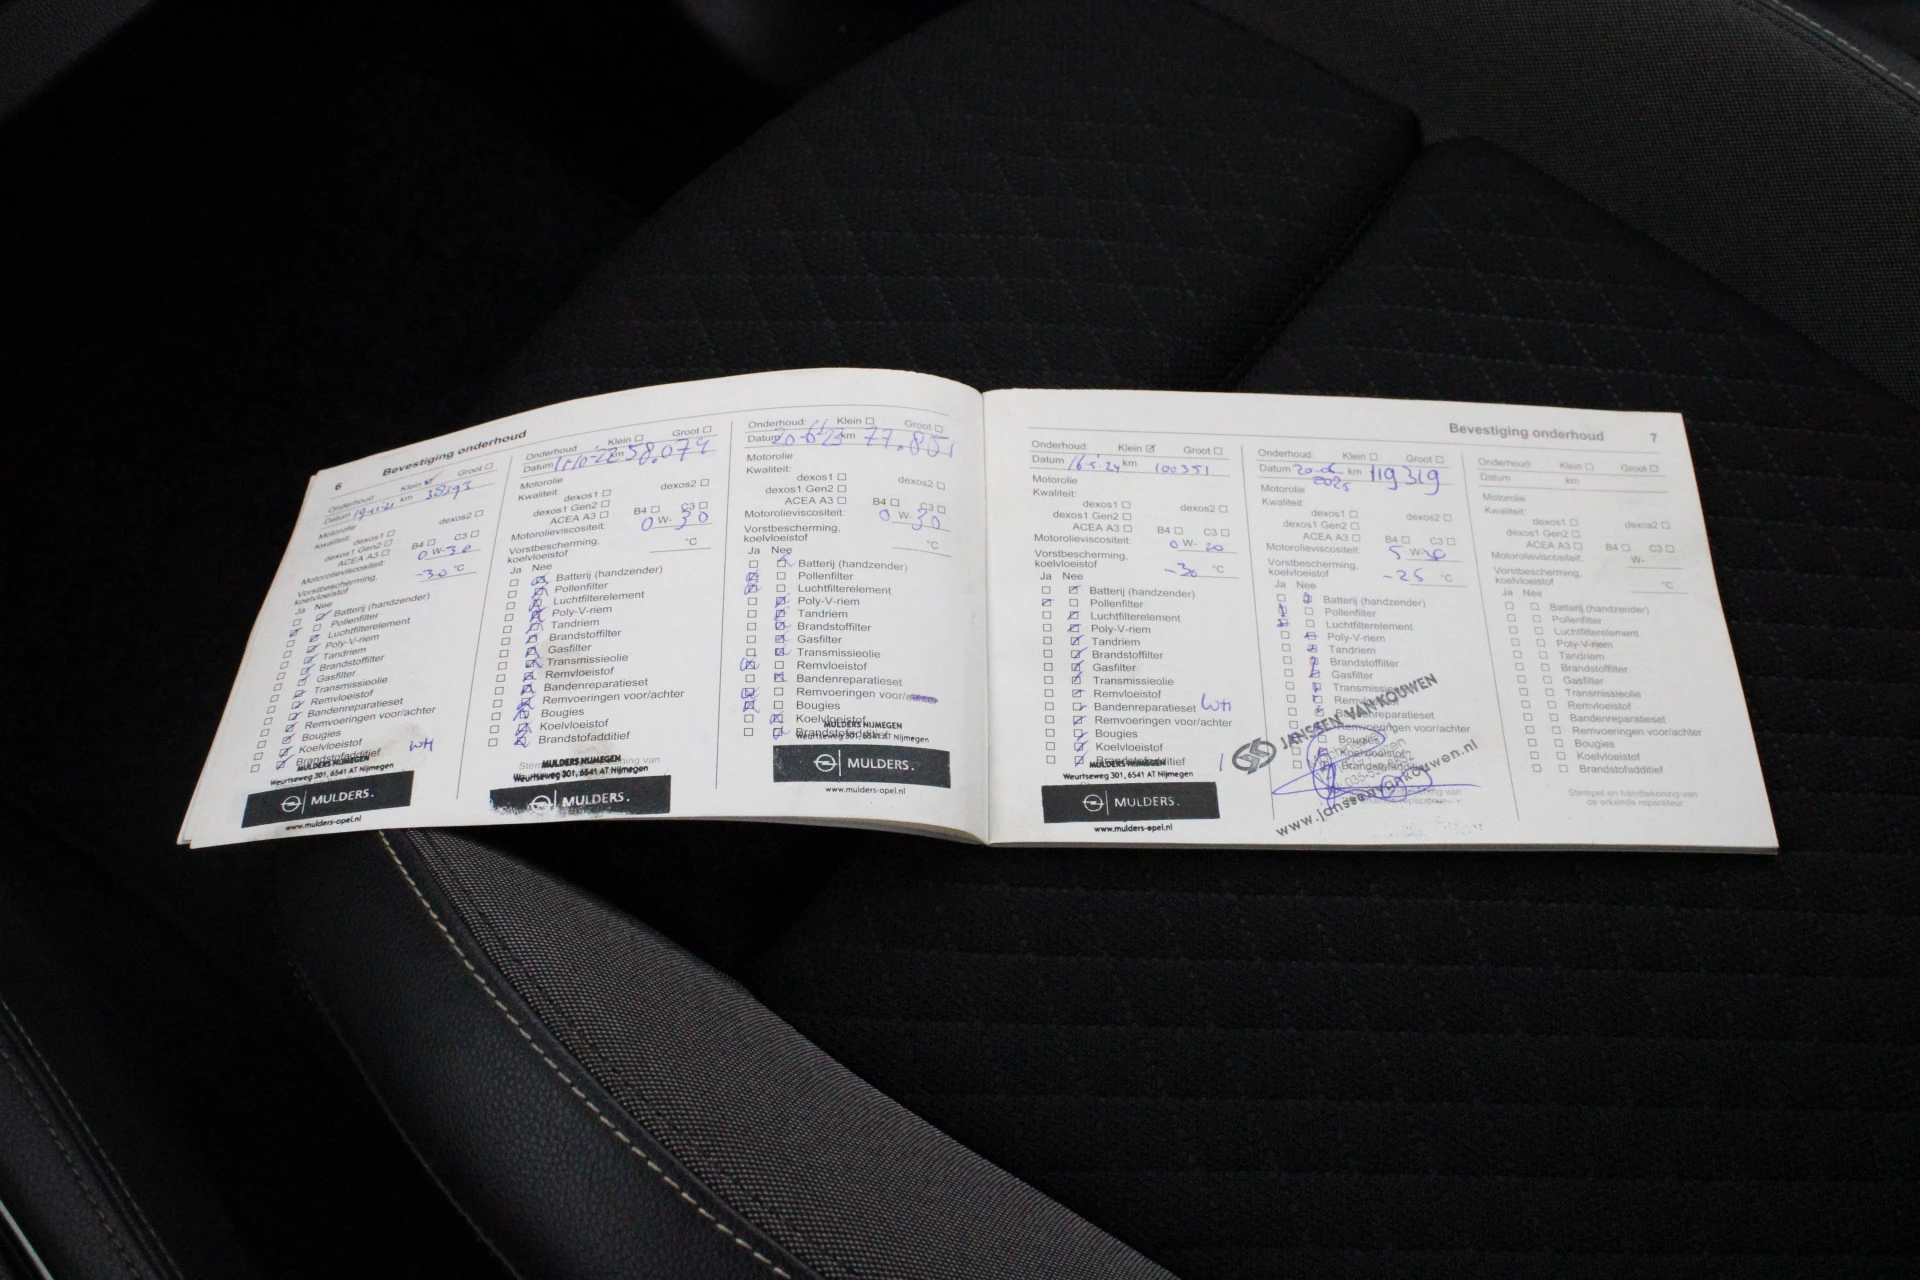 6 Bevestiging onderhoud
Onderhoud: Klein Groot
Datum 19-11-21 km
Motorolie
Kwaliteit: dexos1 dexos2
dexos1 Gen2
ACEA A3 B4 C3
Motorolieviscositeit: 0 W- 30
Vorstbescherming, koelvloeistof -30 °C
Ja Nee
Batterij (handzender)
Pollenfilter
Luchtfilterelement
Poly-V-riem
Tandriem
Brandstoffilter
Gasfilter
Transmissieolie
Remvloeistof
Bandenreparatieset
Remvoeringen voor/achter
Bougies
Koelvloeistof
Brandstofadditief
WH
MULDERS NIJMEGEN
Weurtseweg 301, 6541 AT Nijmegen
MULDERS.
www.mulders-opel.nl
Onderhoud: Klein Groot
Datum km 58.079
Motorolie
Kwaliteit:
dexos1 dexos2
dexos1 Gen2
ACEA A3 B4 C3
Motorolieviscositeit: 0 W- 30
Vorstbescherming,
koelvloeistof °C
Ja Nee
Batterij (handzender)
Pollenfilter
Luchtfilterelement
Poly-V-riem
Tandriem
Brandstoffilter
Gasfilter
Transmissieolie
Remvloeistof
Bandenreparatieset
Remvoeringen voor/achter
Bougies
Koelvloeistof
Brandstofadditief
MULDERS NIJMEGEN
Weurtseweg 301, 6541 AT Nijmegen
MULDERS.
Onderhoud: Klein Groot
Datum 20-6-23 km 77.851
Motorolie
Kwaliteit:
dexos1 dexos2
dexos1 Gen2
ACEA A3 B4 C3
Motorolieviscositeit: 0 W- 30
Vorstbescherming,
koelvloeistof °C
Ja Nee
Batterij (handzender)
Pollenfilter
Luchtfilterelement
Poly-V-riem
Tandriem
Brandstoffilter
Gasfilter
Transmissieolie
Remvloeistof
Bandenreparatieset
Remvoeringen voor/
Bougies
Koelvloeistof
Brandstofadditief
MULDERS NIJMEGEN
Weurtseweg 301, 6541 AT Nijmegen
MULDERS.
www.mulders-opel.nl
Bevestiging onderhoud 7
Onderhoud: Klein Groot
Datum 16-5-24 km 100351
Motorolie
Kwaliteit:
dexos1 dexos2
dexos1 Gen2
ACEA A3 B4 C3
Motorolieviscositeit: 0 W- 20
Vorstbescherming,
koelvloeistof -30 °C
Ja Nee
Batterij (handzender)
Pollenfilter
Luchtfilterelement
Poly-V-riem
Tandriem
Brandstoffilter
Gasfilter
Transmissieolie
Remvloeistof
Bandenreparatieset WH
Remvoeringen voor/achter
Bougies
Koelvloeistof
Brandstofadditief
MULDERS NIJMEGEN
Weurtseweg 301, 6541 AT Nijmegen
MULDERS.
www.mulders-opel.nl
Onderhoud: Klein Groot
Datum 20-06 km 119319
2025
Motorolie
Kwaliteit:
dexos1 dexos2
dexos1 Gen2
ACEA A3 B4 C3
Motorolieviscositeit: 5 W-
Vorstbescherming,
koelvloeistof -25 °C
Ja Nee
Batterij (handzender)
Pollenfilter
Luchtfilterelement
Poly-V-riem
Tandriem
Brandstoffilter
Gasfilter
Transmissieolie
Remvloeistof
Bandenreparatieset
Remvoeringen voor/achter
Bougies
Koelvloeistof
Brandstofadditief
JANSSEN VAN KOUWEN
www.janssenvankouwen.nl
Onderhoud: Klein Groot
Datum km
Motorolie
Kwaliteit:
dexos1 dexos2
dexos1 Gen2
ACEA A3 B4 C3
Motorolieviscositeit: W-
Vorstbescherming,
koelvloeistof °C
Ja Nee
Batterij (handzender)
Pollenfilter
Luchtfilterelement
Poly-V-riem
Tandriem
Brandstoffilter
Gasfilter
Transmissieolie
Remvloeistof
Bandenreparatieset
Remvoeringen voor/achter
Bougies
Koelvloeistof
Brandstofadditief
Stempel en handtekening van
de erkende reparateur